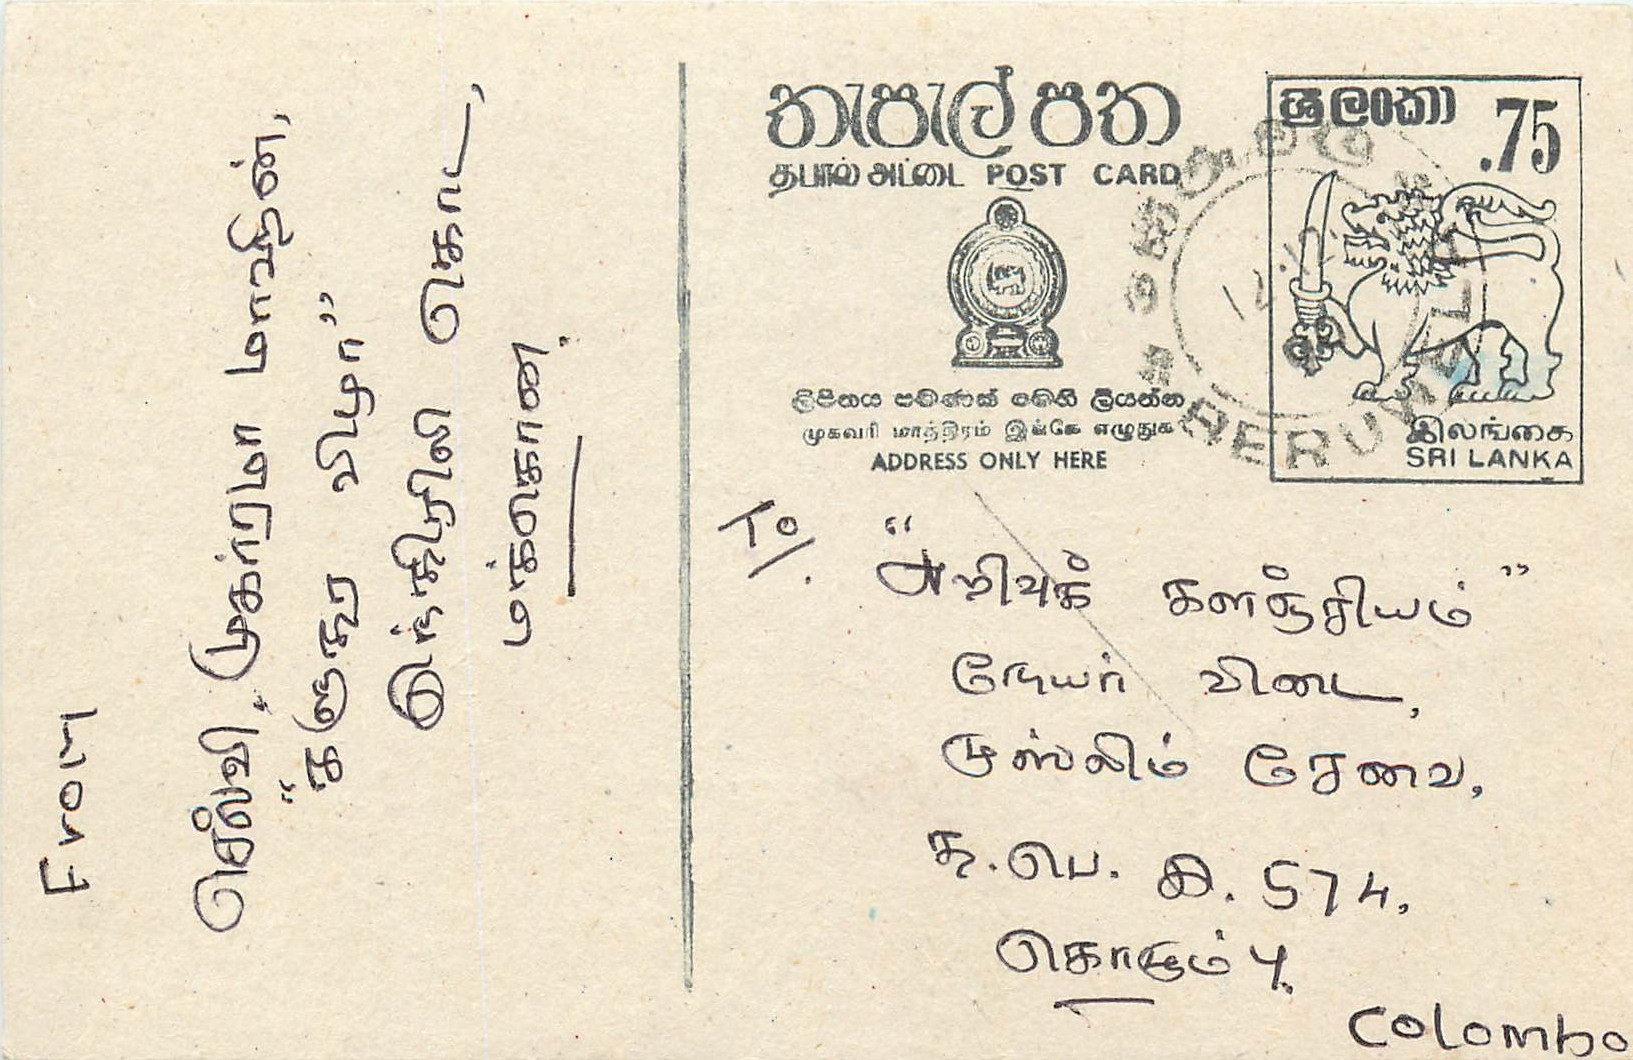 තැපැල් පත
தபால் அட்டை POST CARD
ශ්‍රී ලංකා .75
ලිපිනය පමණක් මෙහි ලියන්න
முகவரி மாத்திரம் இங்கே எழுதுக
ADDRESS ONLY HERE
இலங்கை
SRI LANKA
BERUWELA
From
செல்வி. முகர்ரமா
" விழா"
கொட,
மக்கொண.
To/.
"அறிவுக் களஞ்சியம்"
நேயர் விடை,
முஸ்லிம் சேவை,
த.பெ. இ. 574,
கொழும்பு.
Colombo